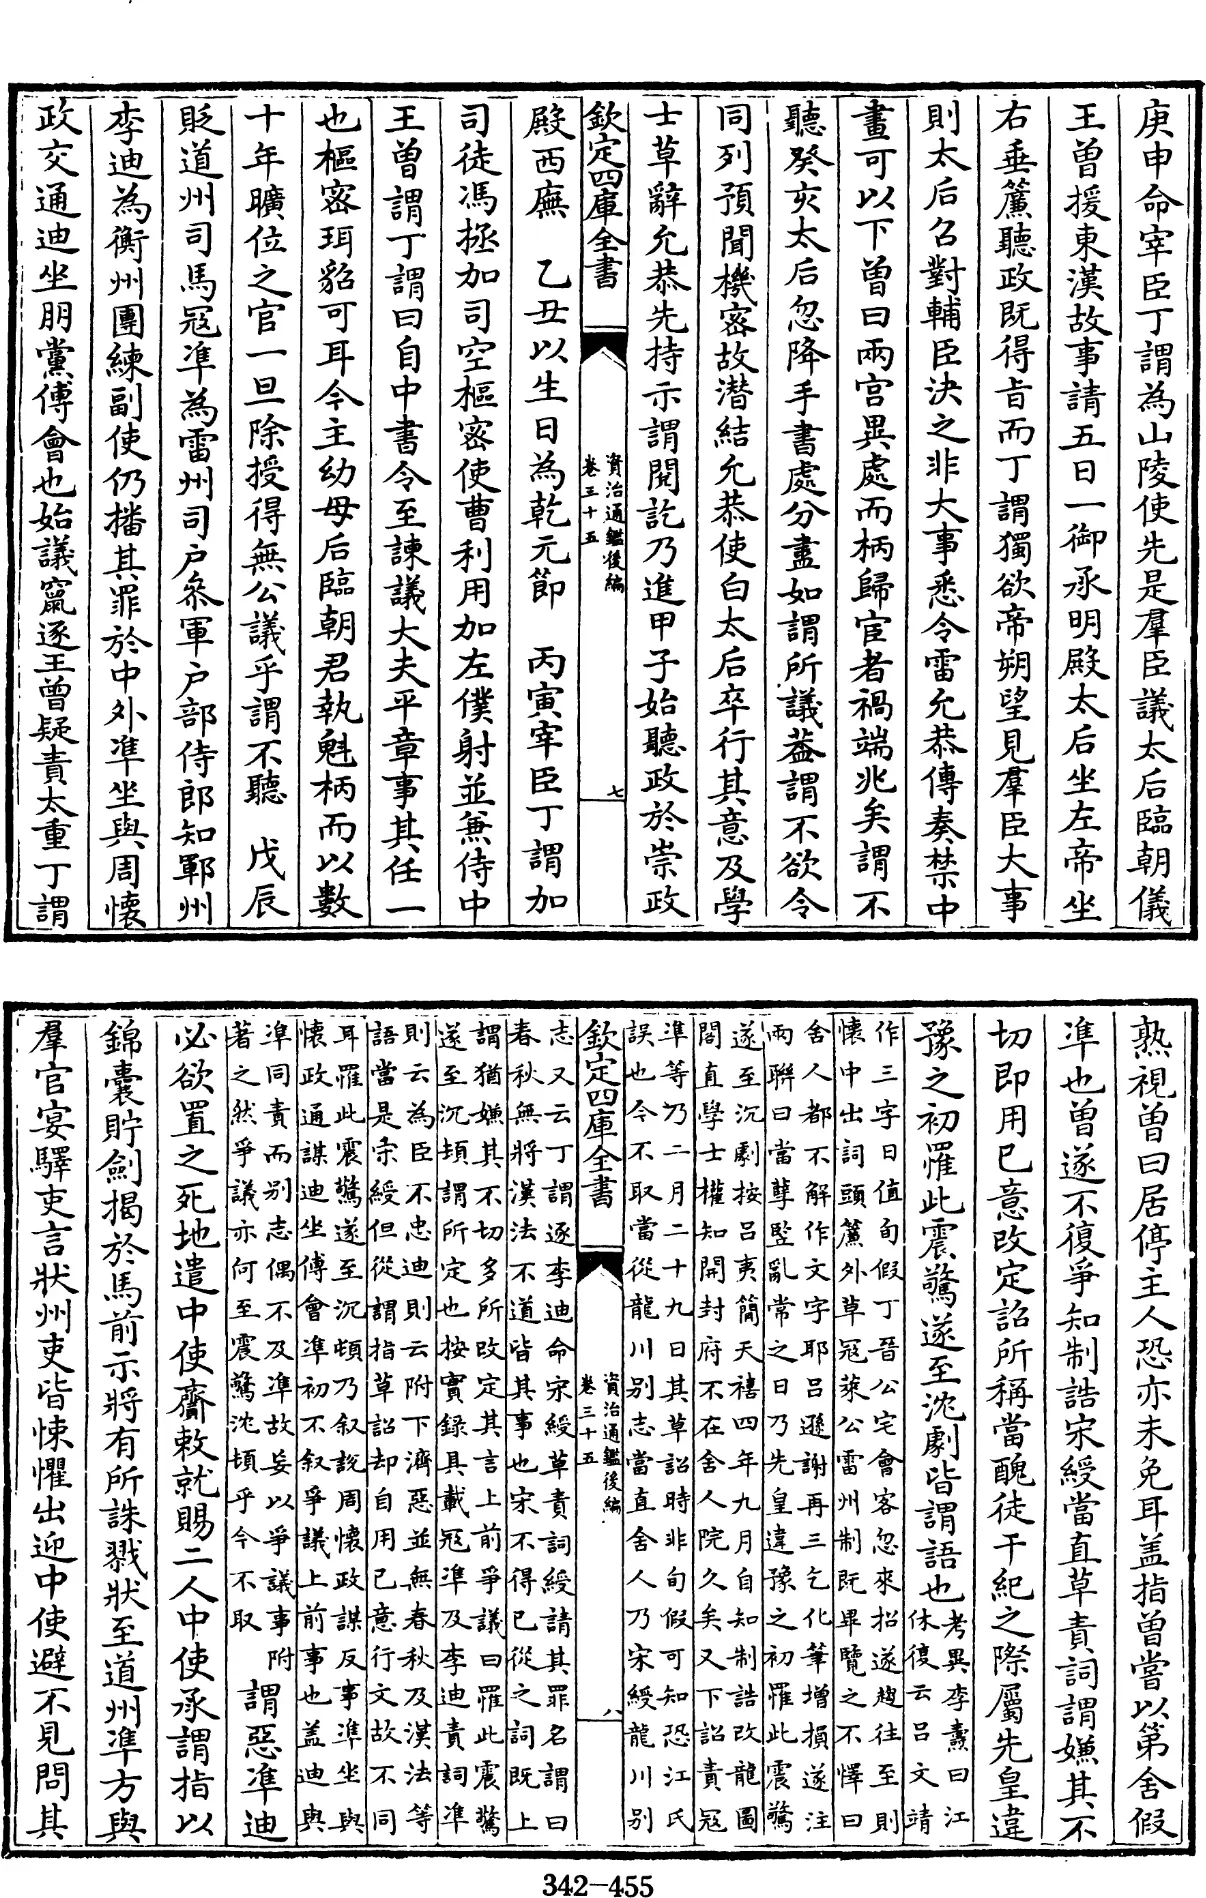 庚申命宰臣丁謂為山陵使先是羣臣議太后臨朝儀
王曾援東漢故事請五日一御承明殿太后坐左帝坐
右垂簾聽政既得旨而丁謂獨欲帝朔望見羣臣大事
則太后召對輔臣決之非大事悉令雷允恭傳奏禁中
畫可以下曾曰兩宮異處而柄歸宦者禍端兆矣謂不
聽癸亥太后忽降手書處分盡如謂所議蓋謂不欲令
同列預聞機密故潛結允恭使白太后卒行其意及學
士草辭允恭先持示謂閱訖乃進甲子始聽政於崇政
欽定四庫全書
資治通鑑後編
卷三十五
七
殿西廡 乙丑以生日為乾元節 丙寅宰臣丁謂加
司徒馮拯加司空樞密使曹利用加左僕射並兼侍中
王曾謂丁謂曰自中書令至諫議大夫平章事其任一
也樞密珥貂可耳今主幼母后臨朝君執魁柄而以數
十年曠位之官一旦除授得無公議乎謂不聽 戊辰
貶道州司馬冦凖為雷州司戸叅軍戸部侍郎知鄆州
李迪為衡州團練副使仍播其罪於中外凖坐與周懷
政交通迪坐朋黨傅會也始議竄逐王曾疑責太重丁謂
熟視曾曰居停主人恐亦未免耳盖指曾嘗以第舍假
凖也曾遂不復爭知制誥宋綬當直草責詞謂嫌其不
切即用已意改定詔所稱當醜徒干紀之際屬先皇違
豫之初罹此震驚遂至沈劇皆謂語也
考異李燾曰江
休復云吕文靖
作三字日值旬假丁晉公宅會客忽來招遂趨往至則
懷中出詞頭簾外草冦萊公雷州制既畢覽之不懌曰
舍人都不解作文字耶吕遜謝再三乞化筆增損遂注
兩聯曰當孽豎亂常之日乃先皇違豫之初罹此震驚
遂至沉劇按吕夷簡天禧四年九月自知制誥改龍圖
閣直學士權知開封府不在舍人院久矣又下詔責冦
準等乃二月二十九日其草詔時非旬假可知恐江氏
誤也今不取當從龍川别志當直舍人乃宋綬龍川别
欽定四庫全書
資治通鑑後編
卷三十五
八
志又云丁謂逐李迪命宋綬草責詞綬請其罪名謂曰
春秋無將漢法不道皆其事也宋不得已從之詞既上
謂猶嫌其不切多所改定其言上前爭議曰罹此震驚
遂至沉頓謂所定也按實錄具載冦凖及李迪責詞凖
則云為臣不忠迪則云附下濟惡並無春秋及漢法等
語當是宋綬但從謂指草詔却自用已意行文故不同
耳罹此震驚遂至沉頓乃叙說周懷政謀反事凖坐與
懷政通謀迪坐傅會凖初不叙爭議上前事也盖迪與
凖同責而别志偶不及凖故妄以爭議事附
著之然爭議亦何至震驚沈頓乎今不取
謂惡凖迪
必欲置之死地遣中使齎敕就賜二人中使承謂指以
錦囊貯劍揭於馬前示將有所誅戮狀至道州凖方與
羣官宴驛吏言狀州吏皆悚懼出迎中使避不見問其
342-455